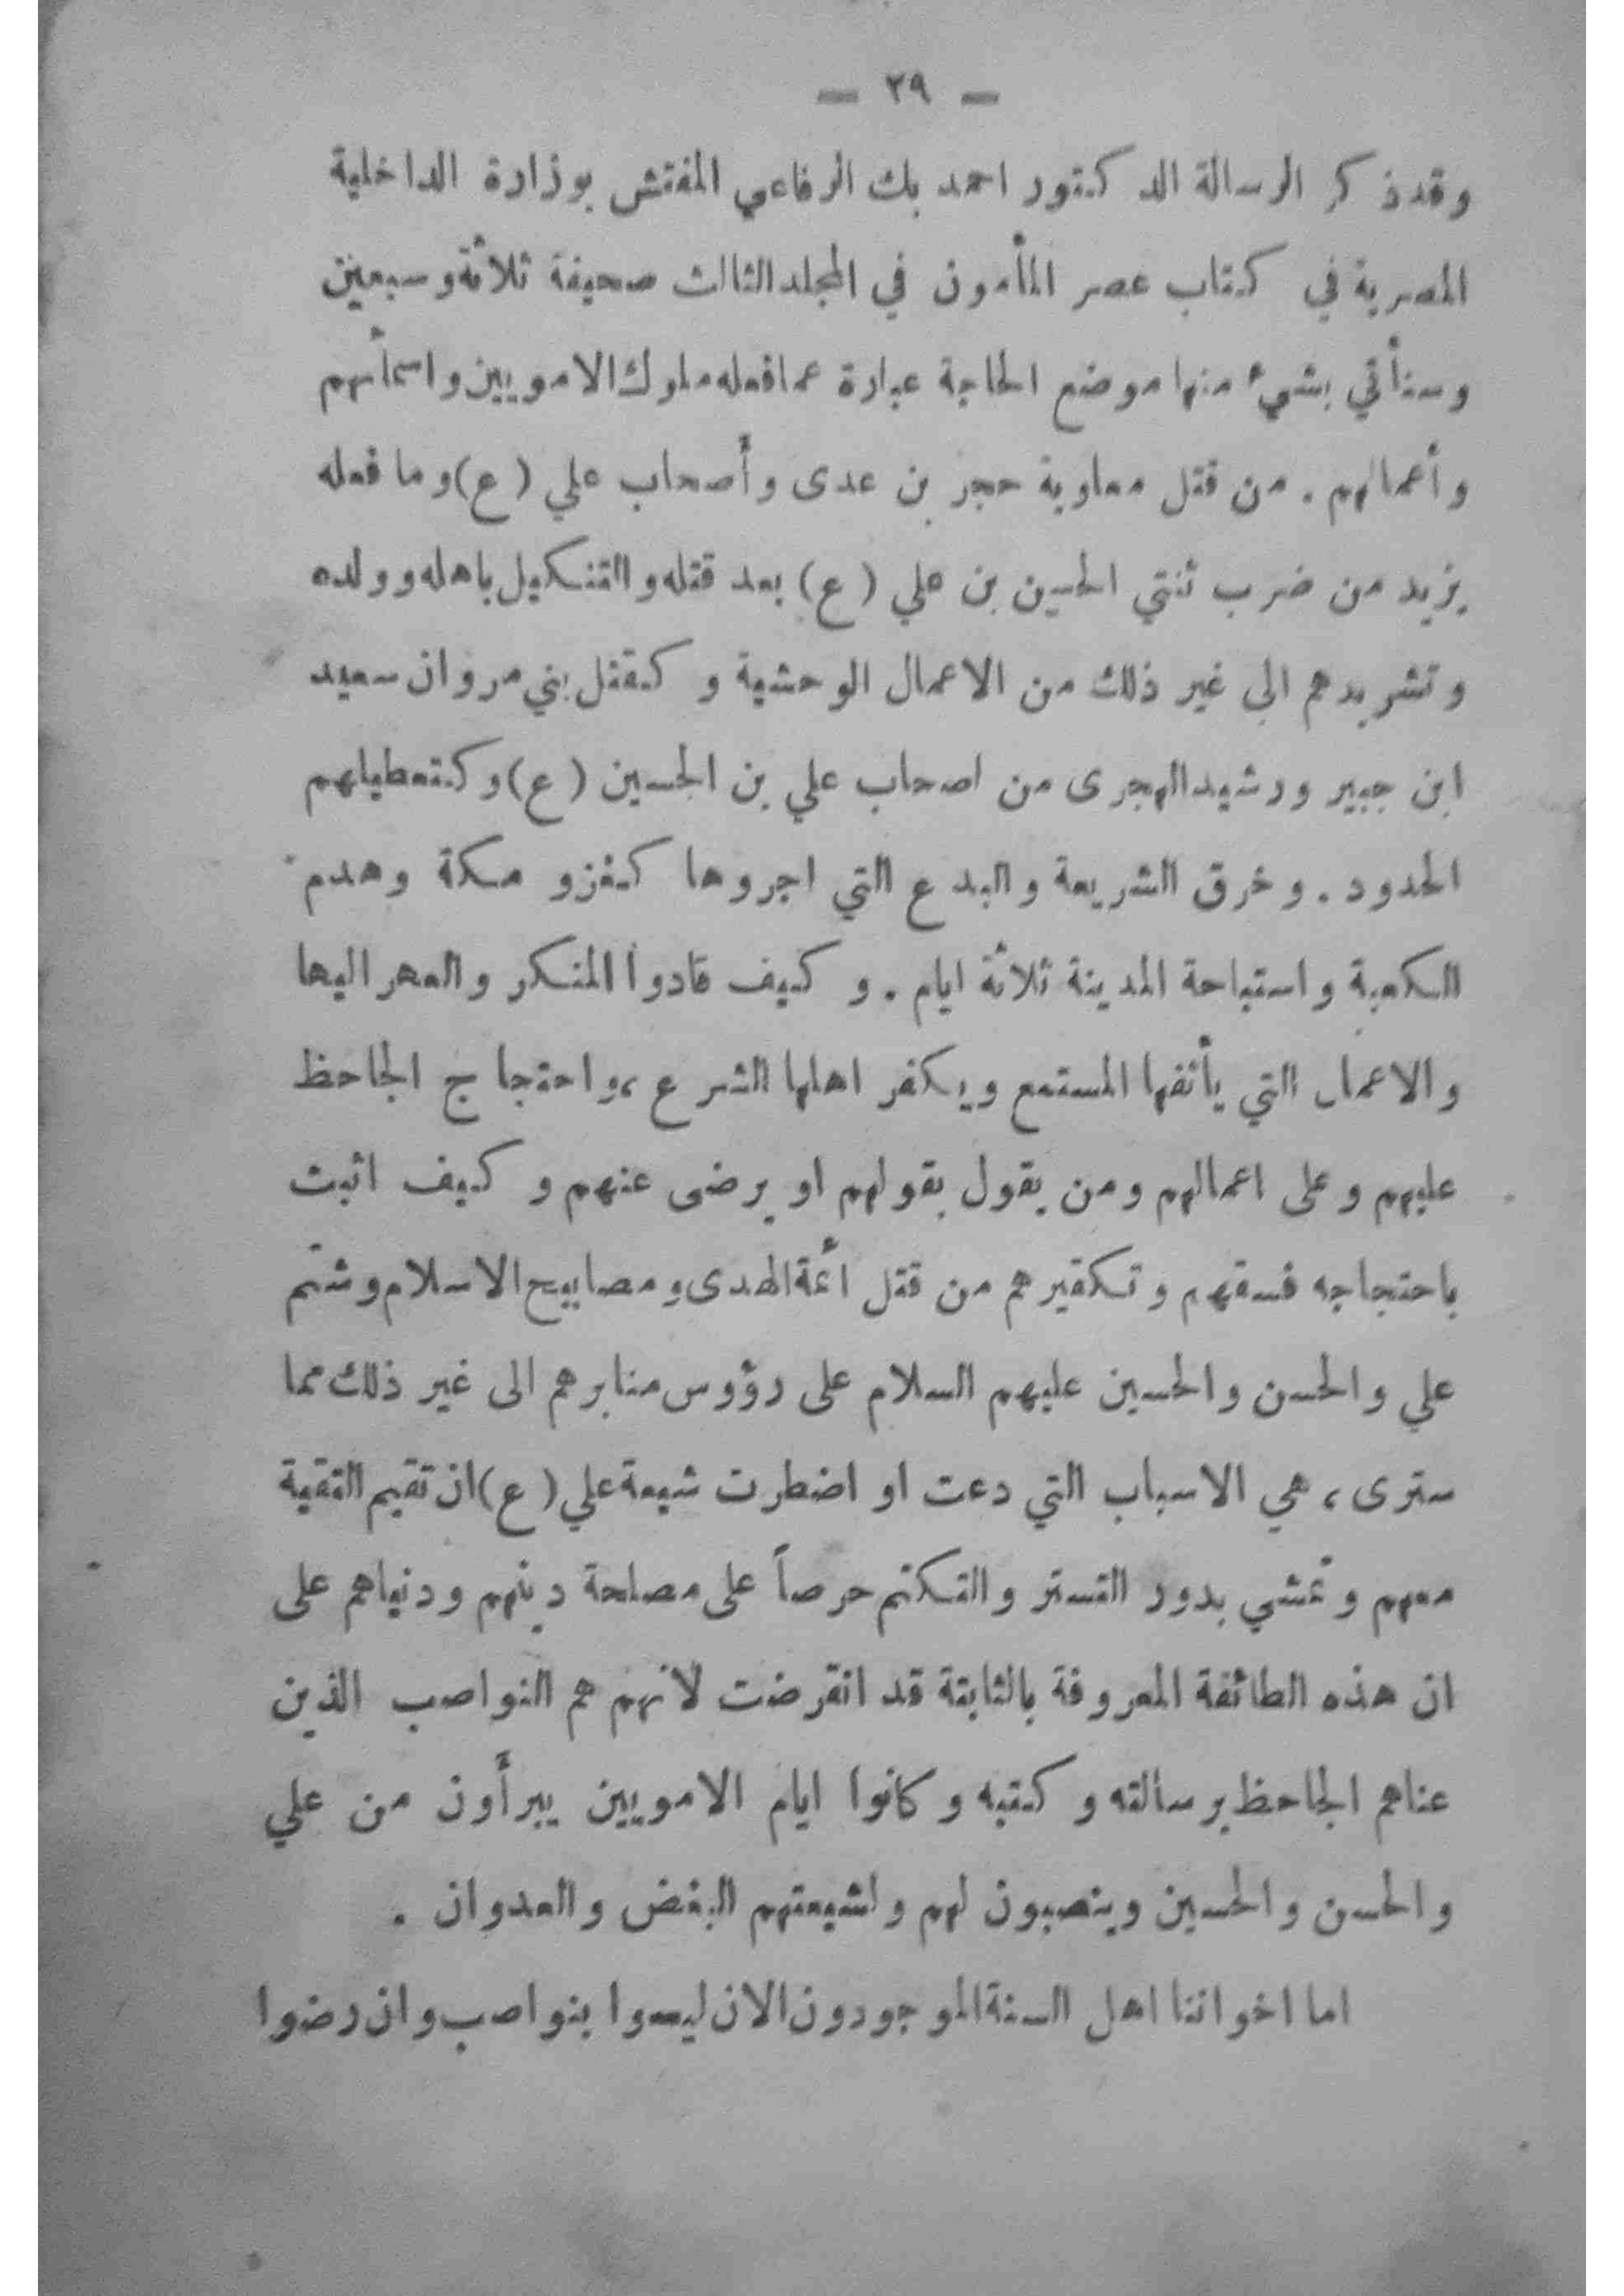 — ٢٩ —
وقد ذكر الرسالة الدكتور احمد بك الرفاعي المفتش بوزارة الداخلية
المصرية في كتاب عصر المأمون في المجلد الثالث صحيفة ثلاثة وسبعين
وسنأتي بشيء منها موضع الحاجة عبارة عما فعله ملوك الامويين واسمأئهم
وأعمالهم . من قتل معاوية حجر بن عدى وأصحاب علي (ع) وما فعله
يزيد من ضرب ثنتي الحسين بن علي (ع) بعد قتله والتنكيل باهله وولده
وتشريدهم الى غير ذلك من الاعمال الوحشية وكقتل بني مروان سعيد
ابن جبير ورشيد الهجرى من اصحاب علي بن الحسين (ع) وكتعطيلهم
الحدود . وخرق الشريعة والبدع التي اجروها كغزو مكة وهدم
الكعبة واستباحة المدينة ثلاثة ايام . وكيف قادوا المنكر والعهر اليها
والاعمال التي يأنفها المستمع ويكفر اهلها الشرع ، واحتجاج الجاحظ
عليهم وعلى اعمالهم ومن يقول بقولهم او يرضى عنهم وكيف اثبت
باحتجاجه فسقهم وتكفيرهم من قتل أئمة الهدى ومصابيح الاسلام وشتم
علي والحسن والحسين عليهم السلام على رؤوس منابرهم الى غير ذلك مما
سترى ، هي الاسباب التي دعت او اضطرت شيعة علي (ع) ان تقيم التقية
معهم وتمشي بدور التستر والتكتم حرصاً على مصلحة دينهم ودنياهم على
ان هذه الطائفة المعروفة بالنابتة قد انقرضت لانهم هم النواصب الذين
عناهم الجاحظ برسالته وكتبه وكانوا ايام الامويين يبرأون من علي
والحسن والحسين وينصبون لهم ولشيعتهم البغض والعدوان .
اما اخواننا اهل السنة الموجودون الان ليسوا بنواصب وان رضوا